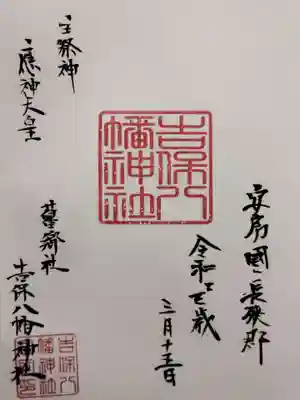 安房國長狭郡
令和
三月十五日
吉保八
幡神社
主祭神
應神天皇
舊郷社
吉保八幡神社
吉保八
幡神社